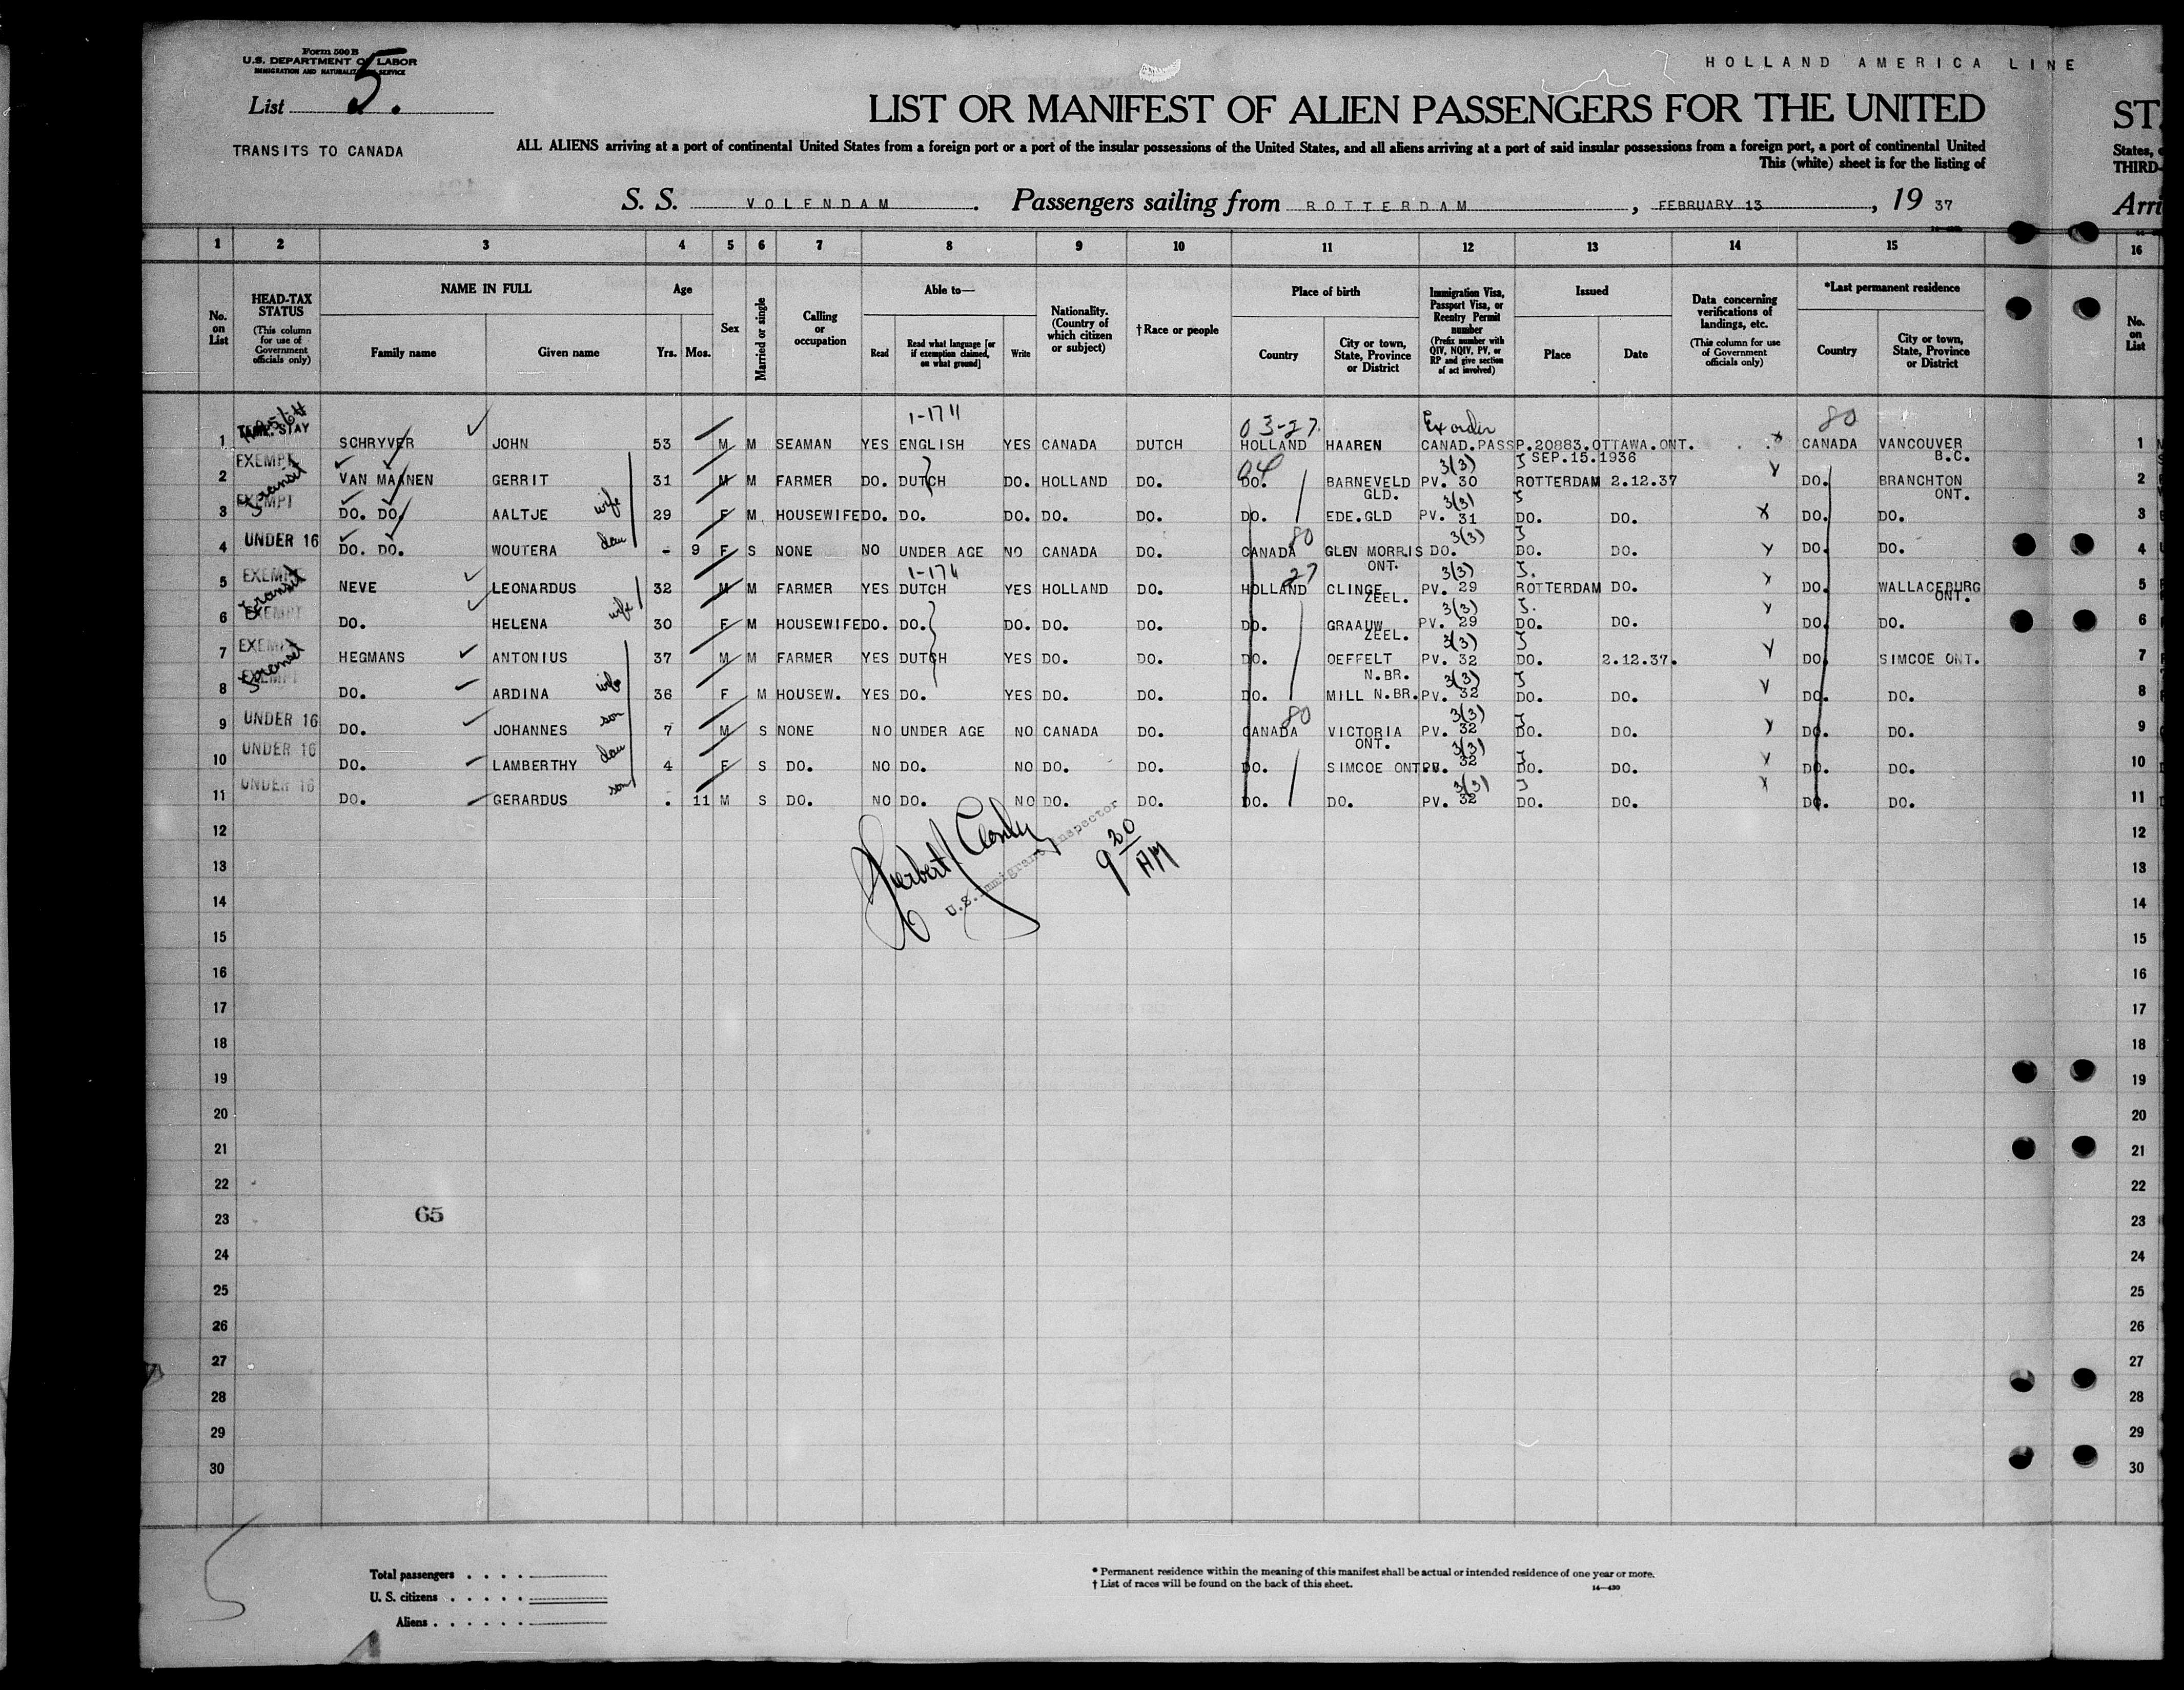 Form 500 B
U.S. DEPARTMENT OF LABOR
IMMIGRATION AND NATURALIZATION SERVICE
HOLLAND AMERICA LINE
List 5.
LIST OR MANIFEST OF ALIEN PASSENGERS FOR THE UNITED ST
TRANSITS TO CANADA
ALL ALIENS arriving at a port of continental United States from a foreign port or a port of the insular possessions of the United States, and all aliens arriving at a port of said insular possessions from a foreign port, a port of continental United States,
This (white) sheet is for the listing of THIRD-
S. S. VOLENDAM. Passengers sailing from ROTTERDAM, FEBRUARY 13, 19 37 Arri
1 2 3 4 5 6 7 8 9 10 11 12 13 14 15 16
No. on List
HEAD-TAX STATUS (This column for use of Government officials only)
NAME IN FULL Family name Given name
Age Yrs. Mos.
Sex
Married or single
Calling or occupation
Able to— Read Read what language [or if exemption claimed, on what ground] Write
Nationality. (Country of which citizen or subject)
† Race or people
Place of birth Country City or town, State, Province or District
Immigration Visa, Passport Visa, or Reentry Permit number (Prefix number with QIV, NQIV, PV, or RP and give section of act involved)
Issued Place Date
Data concerning verifications of landings, etc. (This column for use of Government officials only)
*Last permanent residence Country City or town, State, Province or District
No. on List
1-1711 03-27. Ex order 80
1 TEMP. STAY SCHRYVER JOHN 53 M M SEAMAN YES ENGLISH YES CANADA DUTCH HOLLAND HAAREN CANAD.PASSP.20883.OTTAWA.ONT. SEP.15.1936 CANADA VANCOUVER B.C. 1
2 EXEMPT transit VAN MAANEN GERRIT 31 M M FARMER DO. DUTCH DO. HOLLAND DO. 04 DO. BARNEVELD GLD. 3(3) PV. 30 ROTTERDAM 2.12.37 DO. BRANCHTON ONT. 2
3 EXEMPT DO. DO. AALTJE wife 29 F M HOUSEWIFE DO. DO. DO. DO. DO. DO. EDE.GLD 3(3) PV. 31 DO. DO. DO. DO. 3
4 UNDER 16 DO. DO. WOUTERA dau - 9 F S NONE NO UNDER AGE NO CANADA DO. 80 CANADA GLEN MORRIS ONT. 3(3) DO. DO. DO. DO. DO. 4
5 EXEMPT transit NEVE LEONARDUS 32 M M FARMER YES 1-1711 DUTCH YES HOLLAND DO. 27 HOLLAND CLINGE ZEEL. 3(3) PV. 29 ROTTERDAM DO. DO. WALLACEBURG ONT. 5
6 EXEMPT DO. HELENA wife 30 F M HOUSEWIFE DO. DO. DO. DO. DO. DO. GRAAUW ZEEL. 3(3) PV. 29 DO. DO. DO. DO. 6
7 EXEMPT transit HEGMANS ANTONIUS 37 M M FARMER YES DUTCH YES DO. DO. DO. OEFFELT N.BR. 3(3) PV. 32 DO. 2.12.37. DO. SIMCOE ONT. 7
8 EXEMPT DO. ARDINA wife 36 F M HOUSEW. YES DO. YES DO. DO. DO. MILL N.BR. 3(3) PV. 32 DO. DO. DO. DO. 8
9 UNDER 16 DO. JOHANNES son 7 M S NONE NO UNDER AGE NO CANADA DO. 80 CANADA VICTORIA ONT. 3(3) PV. 32 DO. DO. DO. DO. 9
10 UNDER 16 DO. LAMBERTHY dau 4 F S DO. NO DO. NO DO. DO. DO. SIMCOE ONT. 3(3) PV. 32 DO. DO. DO. DO. 10
11 UNDER 16 DO. GERARDUS son . 11 M S DO. NO DO. NO DO. DO. DO. DO. 3(3) PV. 32 DO. DO. DO. DO. 11
12 12
Herbert
U.S. Immigrant Inspector
9 30 AM
13 13
14 14
15 15
16 16
17 17
18 18
19 19
20 20
21 21
22 22
23 65 23
24 24
25 25
26 26
27 27
28 28
29 29
30 30
Total passengers . . . .
U. S. citizens . . . . .
Aliens . . . . . .
* Permanent residence within the meaning of this manifest shall be actual or intended residence of one year or more.
† List of races will be found on the back of this sheet.
14—430